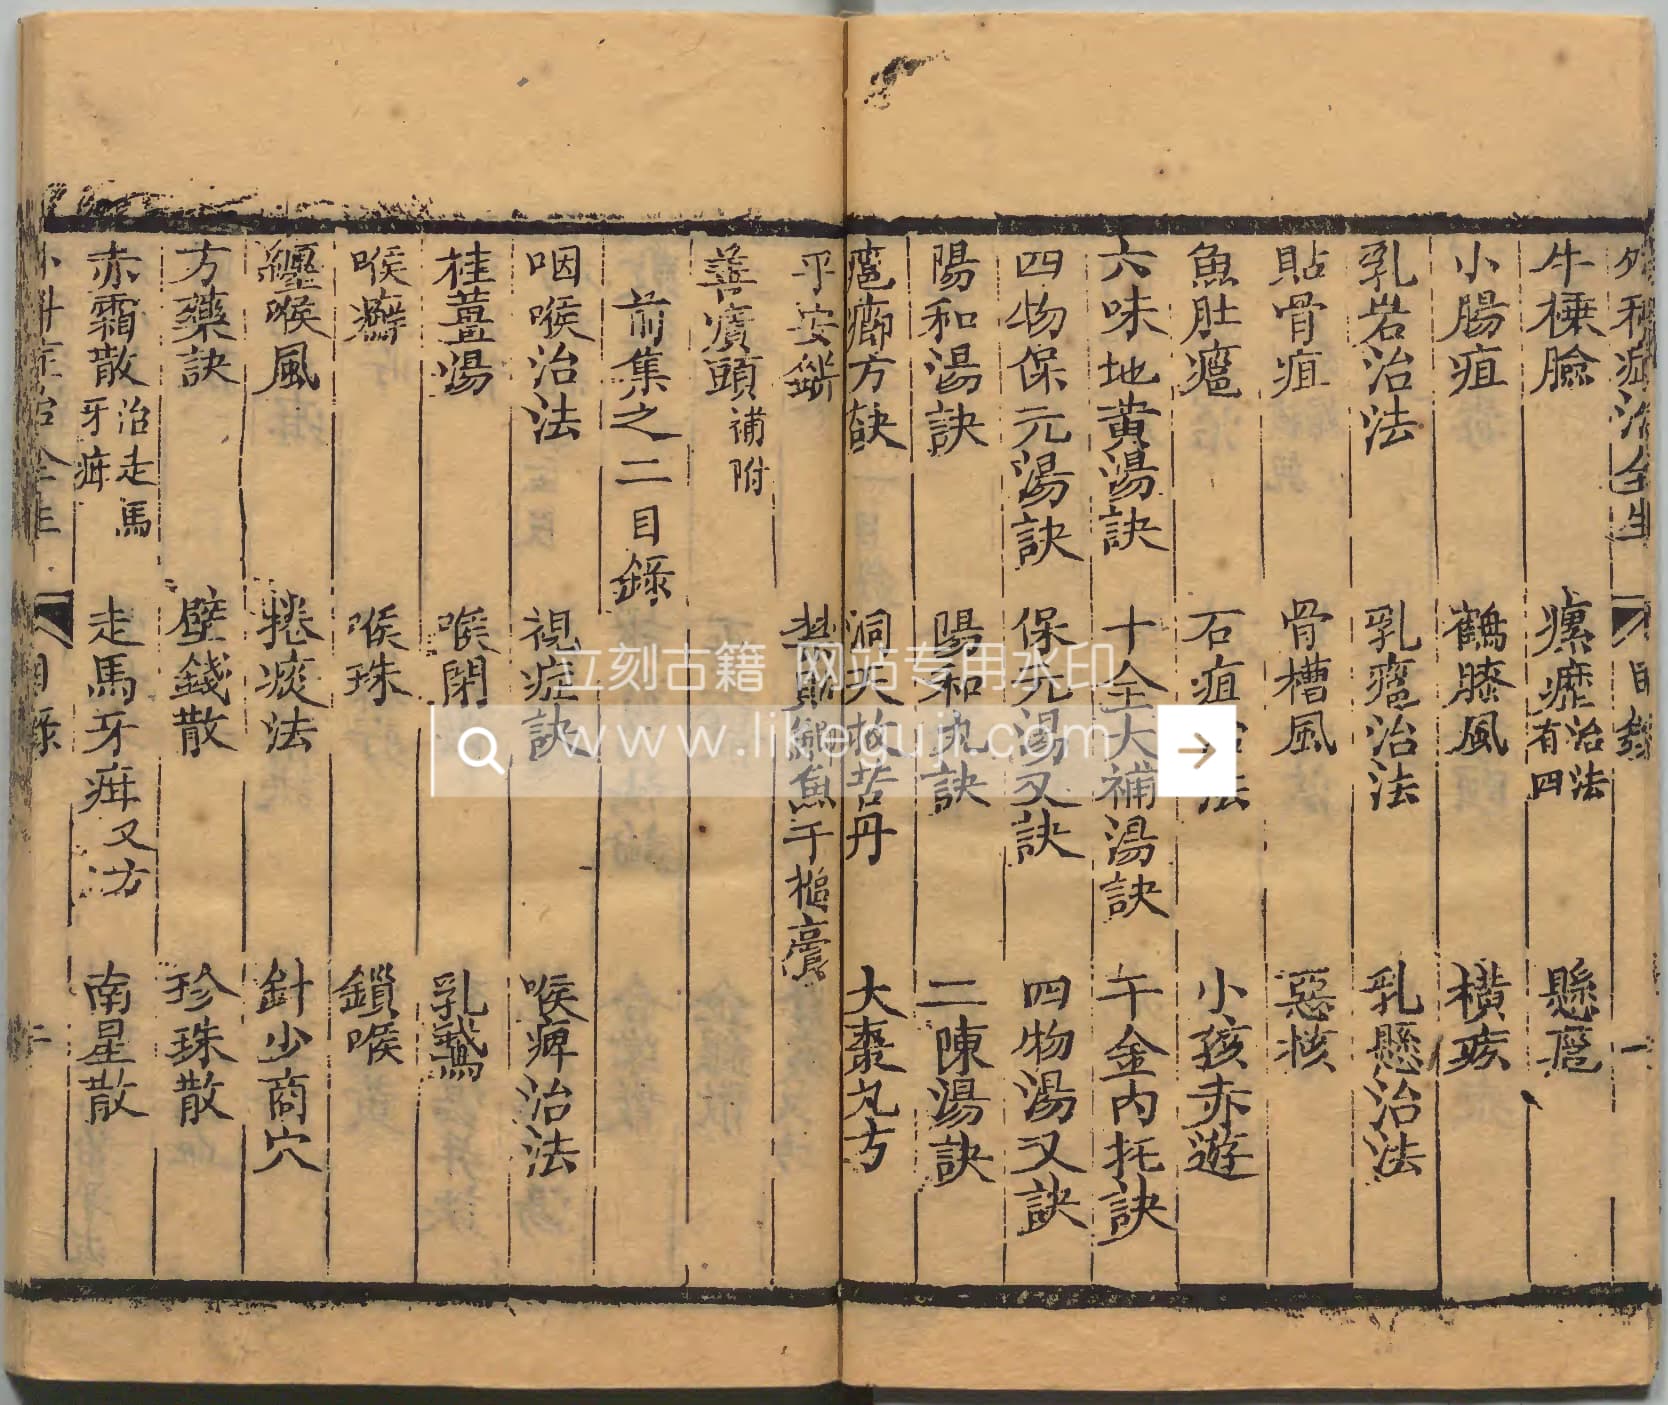 外科症治全生 目錄 一
牛㮋臉 瘰癧治法有四 懸癰
小腸疽 鶴膝風 橫痃
乳岩治法 乳癰治法 乳懸治法
貼骨疽 骨槽風 惡核
魚肚癰 石疽治法 小孩赤遊
六味地黃湯訣 十全大補湯訣 千金內托訣
四物保元湯訣 保元湯又訣 四物湯又訣
陽和湯訣 陽和丸訣 二陳湯訣
方訣 大棗丸方
平安餅 魚千槌膏
頭補附
前集之二目錄
咽喉治法 視症訣 喉痺治法
桂薑湯 喉閉 乳鵝
喉癬 喉珠 鎖喉
纏喉風 捲痰法 針少商穴
方藥訣 壁錢散 珍珠散
赤霜散治走馬牙疳 走馬牙疳又方 南星散
全生 目錄
立刻古籍 网站专用水印
www.likeguji.com